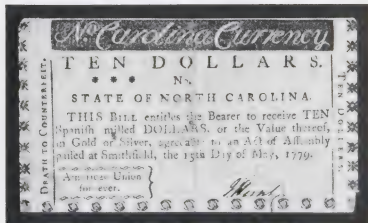 No. Carolina Currency
TEN DOLLARS.
No.
STATE OF NORTH CAROLINA.
THIS BILL entitles the Bearer to receive TEN
Spanish milled DOLLARS, or the Value thereof,
in Gold or Silver, agreeable to an Act of Assembly
passed at Smithfield, the 15th Day of May, 1779.
American Union
for ever.
DEATH TO COUNTERFEIT.
TEN DOLLARS.